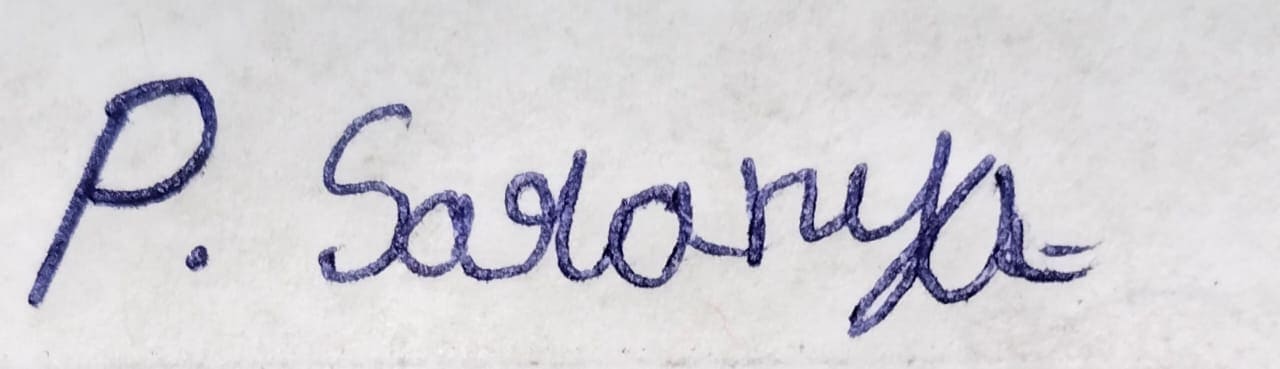 P. Saranya